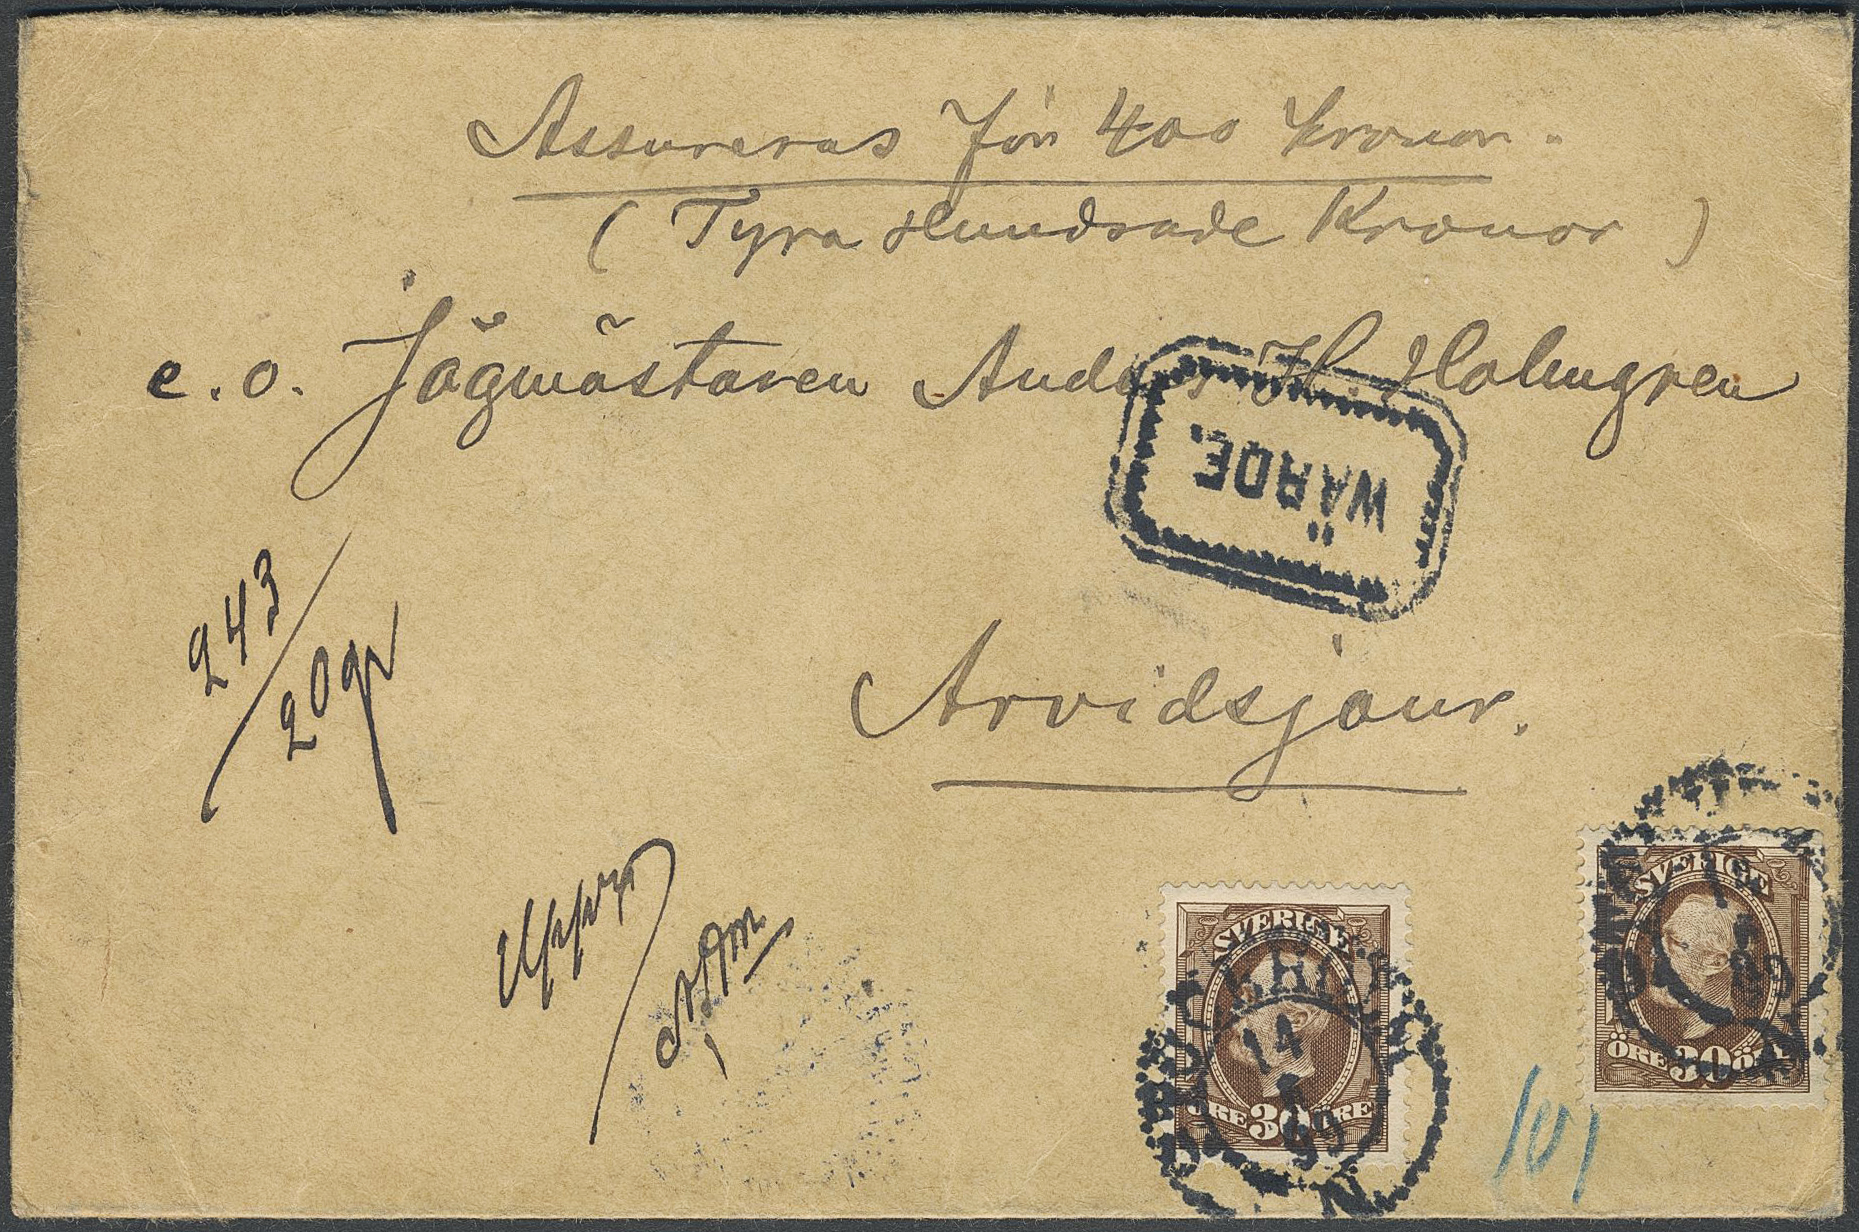 Assureras för 400 kronor.
( Fyra Hundrade Kronor )
e. o. Jägmästaren Anders H. Holmgren
WÄRDE.
243
20 gr
Arvidsjaur.
SVERIGE
ÖRE 30 ÖRE
14
99
SVERIGE
ÖRE 30 ÖRE
99
101